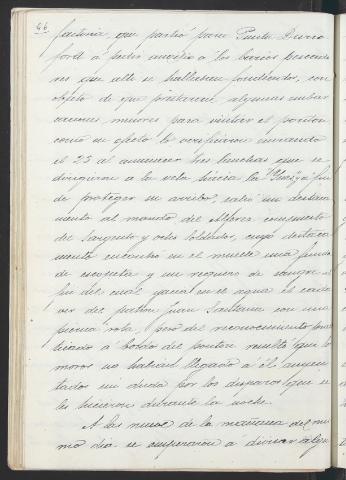 46
factoria, que partió para Punta Durn-
ford á pedir auxilio á los barcos pescado-
res que allí se hallasen fondeados, con
objeto de que prestaran algunas embar
caciones menores para visitar el ponton
como en efecto lo verificaron enviando
el 25 al amanecer tres lanchas que se
dirigieron á la vela hácia la "Ynés", á fin
de proteger su arribo, salió un destaca
mento al mando del Alférez compuesto
del Sargento y ocho Soldados, cuyo destaca
mento encontró en el muelle una funda
de escopeta y un reguero de sangre al
fin del cual yacia en el agua el cadá
ver del patron Juan Santana con una
pierna rota, pero del reconocimiento prac
ticado á bordo del ponton resultó que los
moros no habian llegado á él ahuyen
tados sin duda por los disparos que se
les hicieron durante la noche.
A las nueve de la mañana del mis
mo dia se empezaron á divisar algu